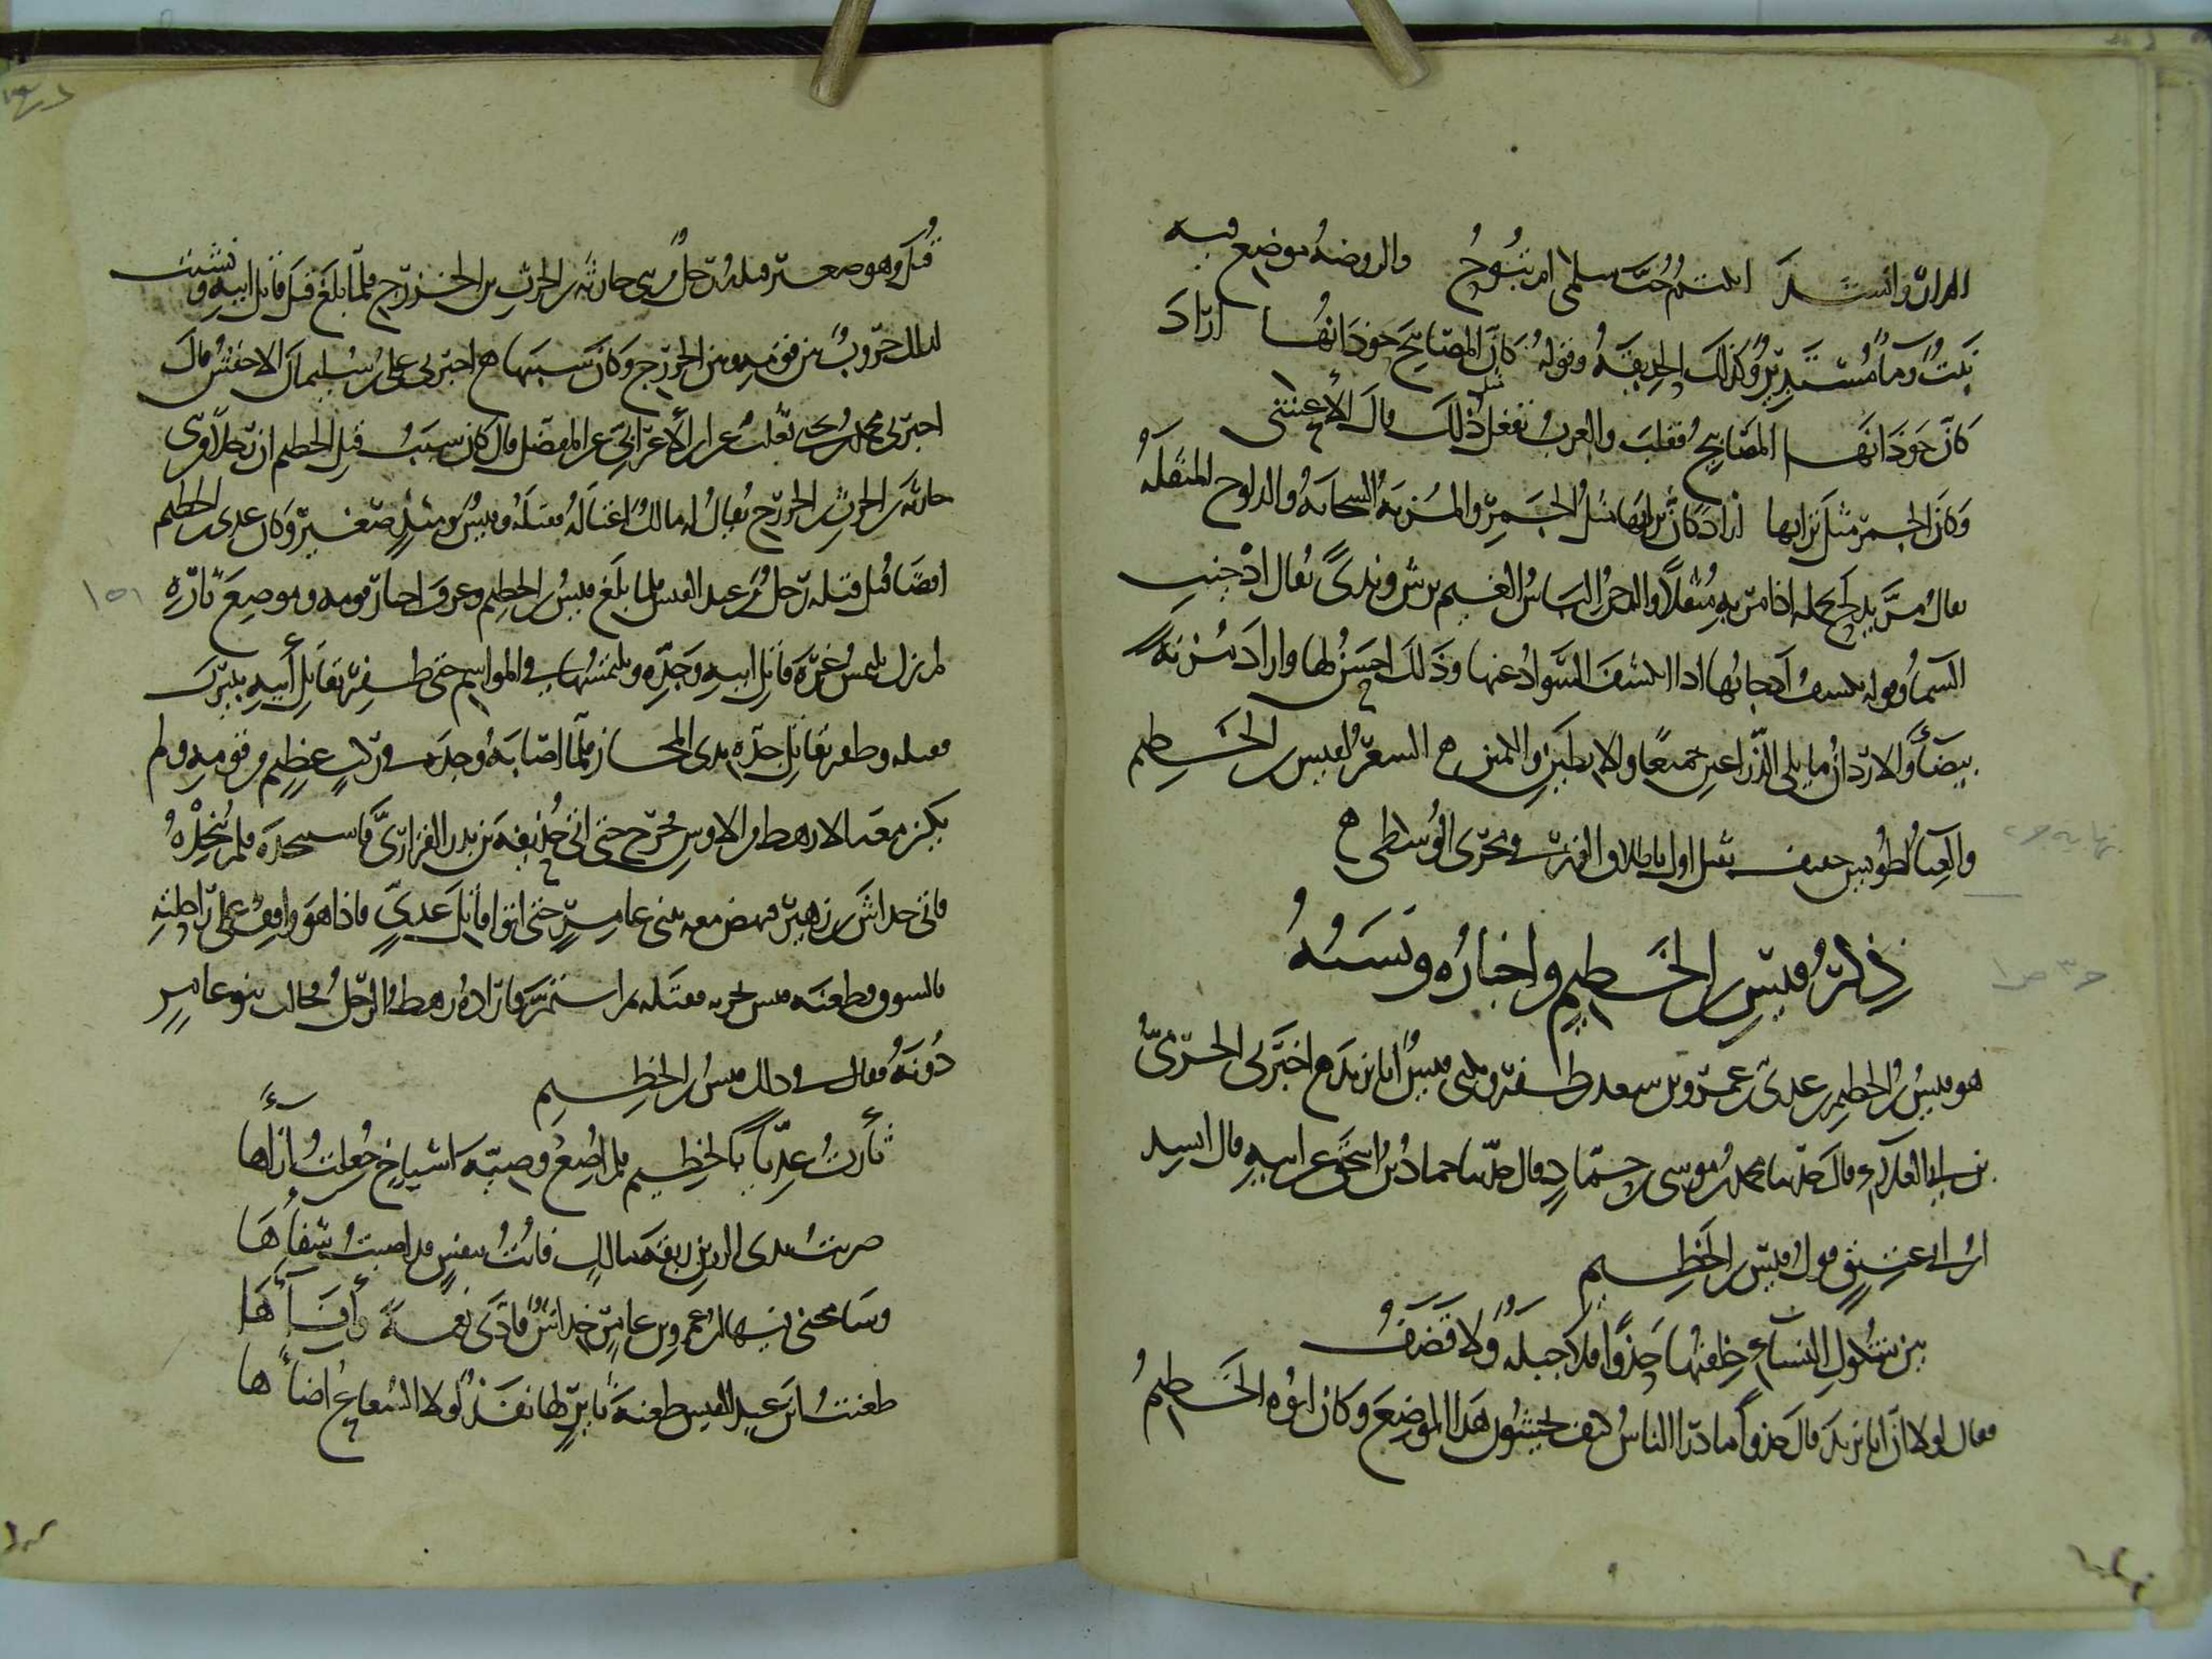 المران وانشد اتكتم حب سلمى ام تبوح والروضة موضع فيه
نبت وماء مستدير وكذلك الحديقة وقوله كأن المصابيح حوذانها اراد
كأن حوذانها المصابيح فقلب والعرب تفعل ذلك قال الأعشى
وكأن الجمر مثل ترابها اراد كأن ترابها مثل الجمر والمزنة السحابة والدلوح المثقلة
يقال مر يدلح بحمله اذا مر به مثقلا والدجن الباس الغيم برش وندى يقال ادجنت
السماء وقوله تكشف ادجانها اذا انكشف السواد عنها وذلك احسن لها واراد مزنة
بيضاء والاردان ما يلى الذراعين جميعا والابطين والكمين ه الشعر لقيس بن الخطيم
والغناء لطويس خفيف ثقيل اول باطلاق الوتر في مجرى الوسطى ه
ذكر قيس بن الخطيم واخباره ونسبه
هو قيس بن الخطيم بن عدى بن عمرو بن سعد بن ظفر ويكنى قيس ابا يزيد ه اخبرنى الحرمى
بن ابى العلاء قال حدثنا محمد بن موسى بن حماد قال حدثنا حماد بن اسحق عن ابيه قال انشد
ابن ابى عتيق قول قيس بن الخطيم
بين شكول النساء خلقتها حذوا فلا جبلة ولا قضف
فقال لولا ان ابا يزيد قال حذوا ما درا الناس كيف يحشون هذا الموضع وكان ابوه الخطيم
قتل وهو صغير قتله رجل من بنى حارثة بن الحرث بن الخزرج فلما بلغ قتل قاتل ابيه ونشبت
لذلك حروب بين قومه وبين الخزرج وكان سببها ه اخبرنى على بن سليمان الاخفش قال
اخبرنى محمد بن يحيى ثعلب عن ابن الأعرابى عن المفضل قال كان سبب قتل الخطيم ان رجلا من بنى
حارثة بن الحرث بن الخزرج يقال له مالك اغتاله فقتله وقيس يومئذ صغير وكان عدى ابو الخطيم
ايضا قتل قتله رجل من عبد القيس فلما بلغ قيس بن الخطيم وعرف اخبار قومه وموضع ثاره
لم يزل يلتمس غرة قاتل ابيه وجده ويلتمسهما في المواسم حتى ظفر بقاتل أبيه بيثرب
فقتله وظفر بقاتل جده بذى المجاز فلما اصابه وجده في ركب عظيم من قومه ولم
يكن معه الا رهط من الاوس فخرج حتى اتى حذيفة بن بدر الفزارى فاستنجده فلم ينجده
فاتى خداش بن زهير فنهض معه ببنى عامر حتى اتوا قاتل عدى فاذا هو واقف على راحلته
بالسوق وطعنه قيس بحربة فقتله ثم استمر فاراده رهط الرجل فحالت بنو عامر
دونه فقال في ذلك قيس بن الخطيم
ثأرت عديا والخطيم فلم اضع وصية اشياخ جعلت بازاءها
ضربت بذى الزرين ربقة مالك فأبت بنفس قد اصبت شفاءها
وسامحنى فيها ابن عمرو بن عامر خداش فأدى نعمة وأفاءها
طعنت ابن عبد القيس طعنة ثائر لها نفذ لولا الشعاع اضاءها
١٥١